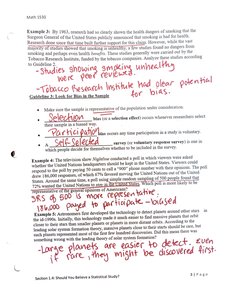 Math 1530
Example 3: By 1963, research had so clearly shown the health dangers of smoking that the
Surgeon General of the United States publicly announced that smoking is bad for health.
Research done since that time built further support for this claim. However, while the vast
majority of studies showed that smoking is unhealthy, a few studies found no dangers from
smoking and perhaps even health benefits. These studies generally were carried out by the
Tobacco Research Institute, funded by the tobacco companies. Analyze these studies according
to Guideline 2.
-Studies showing smoking unhealthy
were peer reviewed.
-Tobacco Research Institute had clear potential
for bias.
Guideline 3: Look for Bias in the Sample
Make sure the sample is representative of the population under consideration.
Selection bias (or a selection effect) occurs whenever researchers select
their sample in a biased way.
Participation bias occurs any time participation in a study is voluntary.
A Self-Selected survey (or voluntary response survey) is one in
which people decide for themselves whether to be included in the survey.
Example 4: The television show Nightline conducted a poll in which viewers were asked
whether the United Nations headquarters should be kept in the United States. Viewers could
respond to the poll by paying 50 cents to call a "900" phone number with their opinions. The poll
drew 186,000 responses, of which 67% favored moving the United Nations out of the United
States. Around the same time, a poll using simple random sampling of 500 people found that
72% wanted the United Nations to stay in the United States. Which poll is more likely to be
representative of the general opinions of Americans?
SRS of 500 is more representative.
186,000 payed to participate - biased
Example 5: Astronomers first developed the technology to detect planets around other stars
in the mid-1990s. Initially, this technology made it much easier to find massive planets that orbit
closer to their stars than smaller planets or planets in more distant orbits. According to the
leading solar system formation theory, massive planets close to their stars should be rare, but
such planets represented most of the first few hundred discoveries. Did this mean there was
something wrong with the leading theory of solar system formation?
-Large planets are easier to detect. even
if rare, they might be discovered first.
Section 1.4: Should You Believe a Statistical Study?
2 | Page